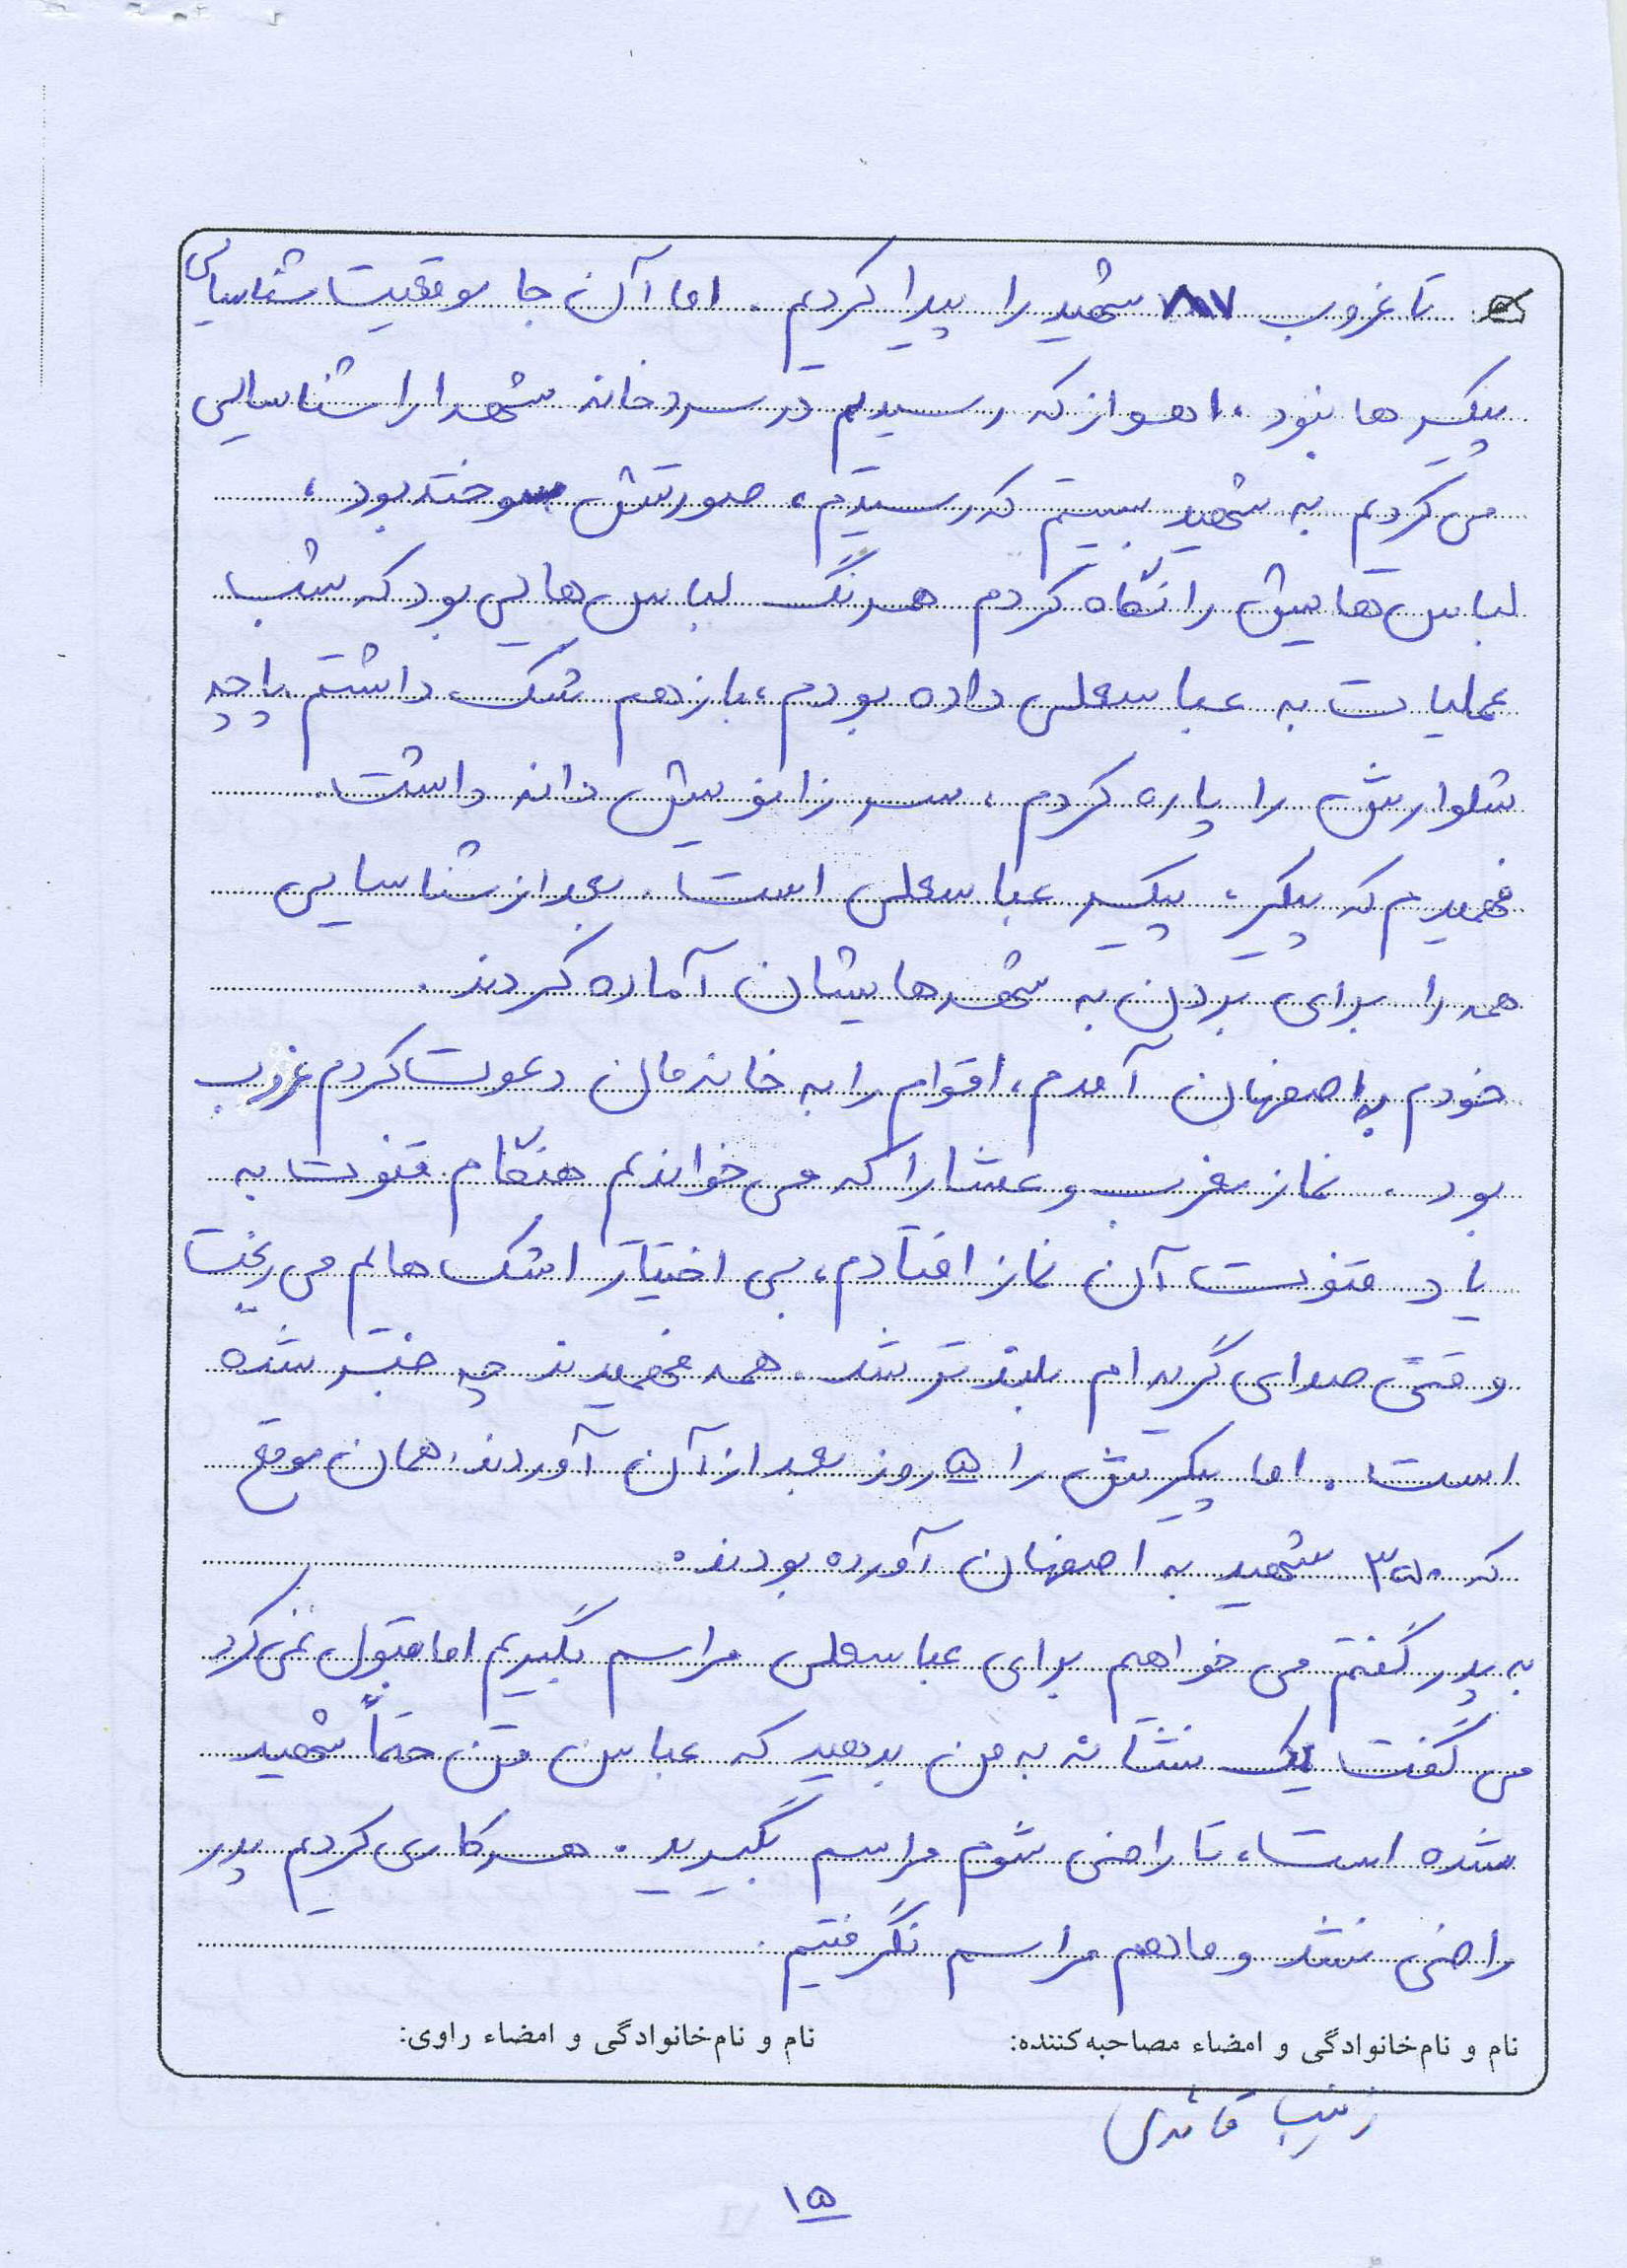 تا غروب ۸۷ شهید را پیدا کردیم. اما آن جا موقعیت شناسایی
پیکرها نبود، اهواز که رسیدیم در سردخانه شهدا را شناسایی
می کردیم به شهید بیستم که رسیدم، صورتش سوخته بود،
لباس هایش را نگاه کردم همرنگ لباس هایی بود که شب
عملیات به عباسعلی داده بودم، باز هم شک داشتم پاچه
شلوارش را پاره کردم، سر زانویش دانه داشت.
فهمیدم که پیکر، پیکر عباسعلی است. بعد از شناسایی
همه را برای بردن به شهرهایشان آماده کردند.
خودم به اصفهان آمدم، اقوام را به خانه مان دعوت کردم غروب
بود. نماز مغرب و عشا را که می خواندم هنگام قنوت به
یاد قنوت آن نماز افتادم، بی اختیار اشک هایم می ریخت
وقتی صدای گریه ام بلند تر شد. همه فهمیدند چه خبر شده
است. اما پیکرش را ۵ روز بعد از آن آوردند. همان موقع
که ۳۵۰ شهید به اصفهان آورده بودند.
به پدر گفتم می خواهم برای عباسعلی مراسم بگیریم اما قبول نمی کرد
می گفت یک نشانه به من بدهید که عباس من حتماً شهید
شده است، تا راضی شوم مراسم بگیرید. هر کاری کردیم پدر
راضی نشد و ما هم مراسم نگرفتیم.
نام و نام‌خانوادگی و امضاء مصاحبه‌کننده: نام و نام‌خانوادگی و امضاء راوی:
زینب قائدی
۱۵